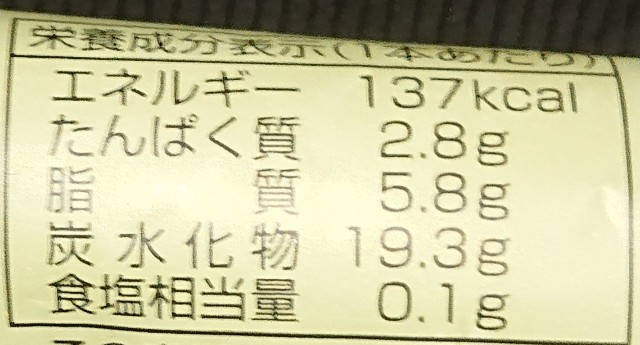 栄養成分表示(1本あたり)
エネルギー 137kcal
たんぱく質 2.8g
脂質 5.8g
炭水化物 19.3g
食塩相当量 0.1g